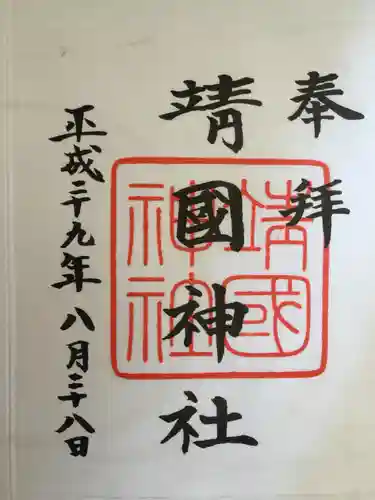 奉拝
靖國神社
平成二十九年八月二十八日
靖國
神社